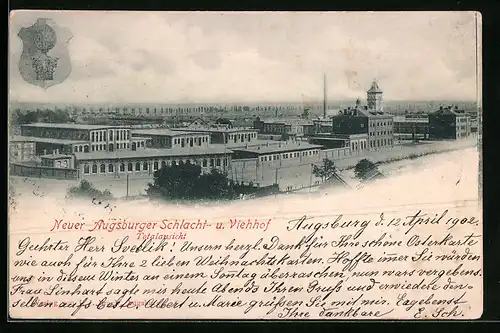 Neuer Augsburger Schlacht- u. Viehhof
Totalansicht
Augsburg d. 12 April 1902.
Geehrter Herr Svetlik! Unsern herzl. Dank für Ihre schöne Osterkarte
wie auch für Ihre 2 lieben Weihnachtskarten. Hoffte im̄er Sie würden
uns in diesem Winter an einem Sonntag überraschen, nun wars vergebens.
Frau Linhart sagte mir heute Abends Ihren Gruß und erwiedere den-
selben aufs beste Albert u Marie grüßen Sie, mit mir. Ergebenst
Ihre dankbare E. Sch.